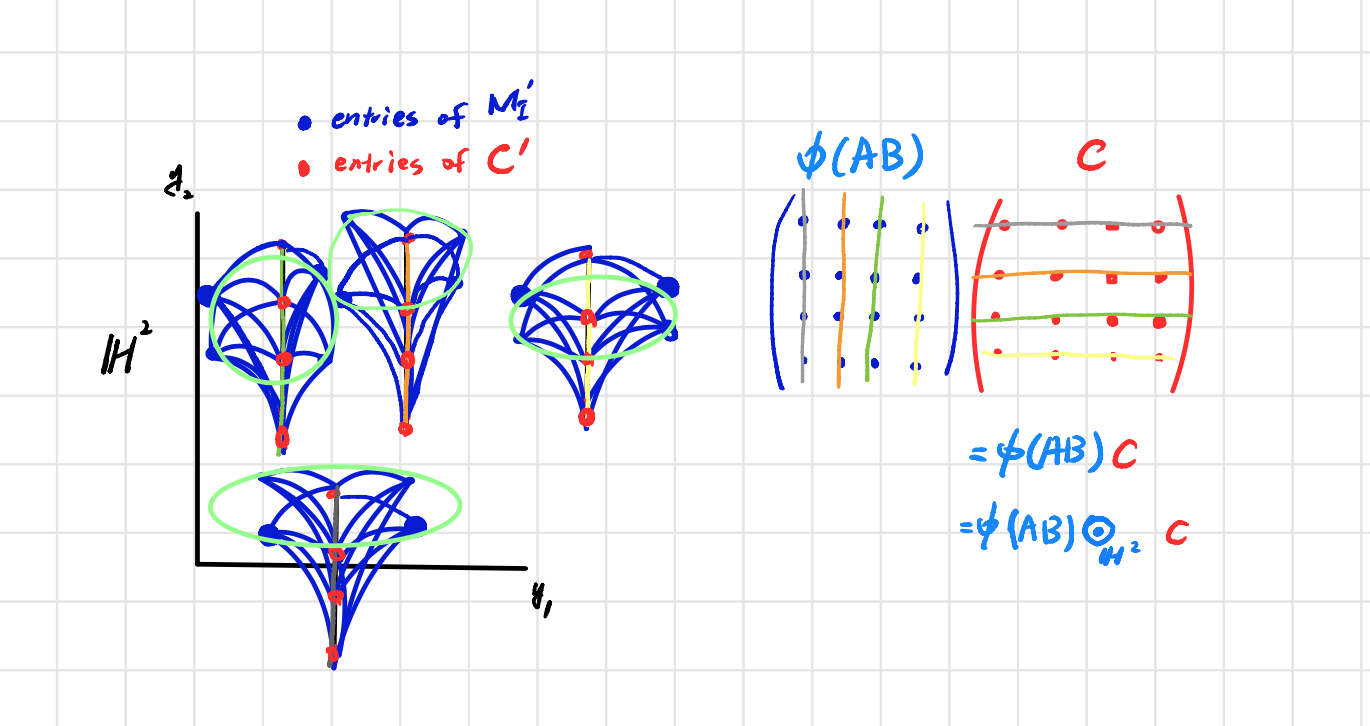 • entries of M_I'
• entries of C'
y_2
ℍ²
y_1
ϕ(AB) C
= ϕ(AB) C
= ϕ(AB) ⊙_ℍ² C